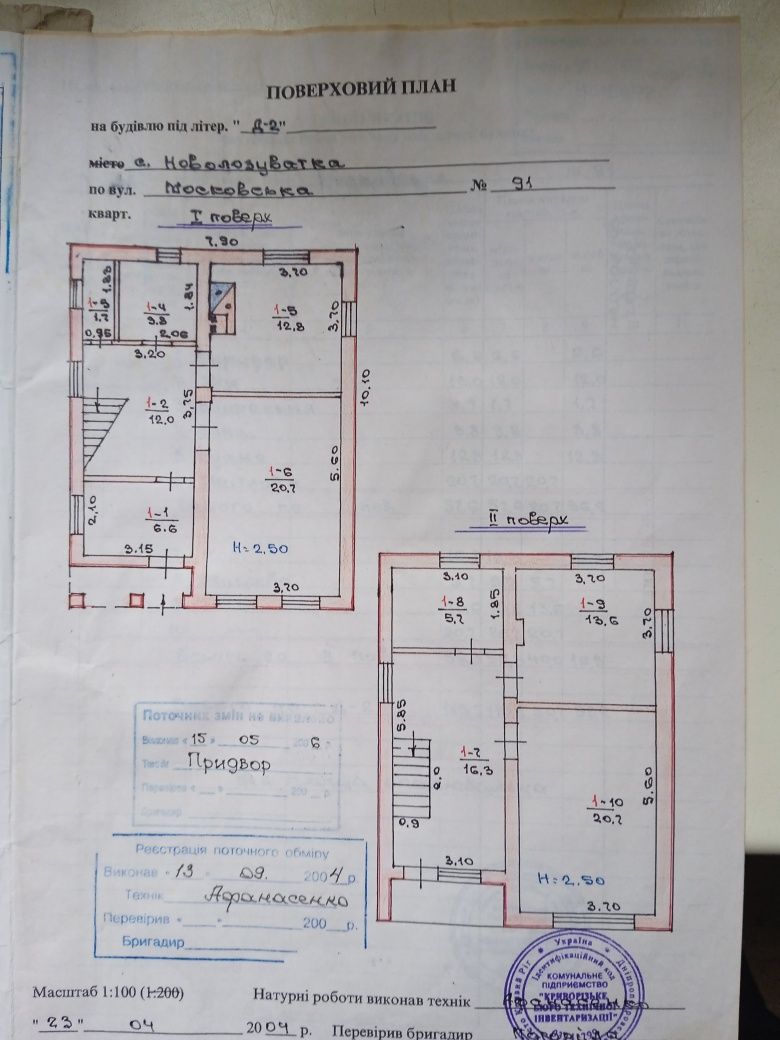 ПОВЕРХОВИЙ ПЛАН
на будівлю під літер. "Д-2"
місто с. Новолозуватка
по вул. Московська № 91
кварт. I поверх
7.90
3,70
1.88
1.84
1-4
3.8
1-5
12,8
3,70
1.7
0,95
2,06
3,20
1-2
12,0
3,75
10.10
1-6
20,7
5.60
2,10
1-1
6.6
3.15
H=2,50
3,70
II поверх
3,10
3,70
1-8
5,7
1.85
1-9
13,6
3,70
5.85
1-7
16,3
2,0
0,9
5.60
1-10
20,7
3,10
H=2,50
3.70
Поточних змін не виявлено
Виконав "15" 05 2006 р.
Технік Придвор
Перевірив " " 200 р.
Бригадир
Реєстрація поточного обміру
Виконав "13" 09. 2004 р.
Технік Афанасенко
Перевірив " " 200 р.
Бригадир
Україна
Ідентифікаційний код
КОМУНАЛЬНЕ
ПІДПРИЄМСТВО
"КРИВОРІЗЬКЕ
БЮРО ТЕХНІЧНОЇ
ІНВЕНТАРИЗАЦІЇ"
Масштаб 1:100 (1:200) Натурні роботи виконав технік
"23" 04 2004 р. Перевірив бригадир